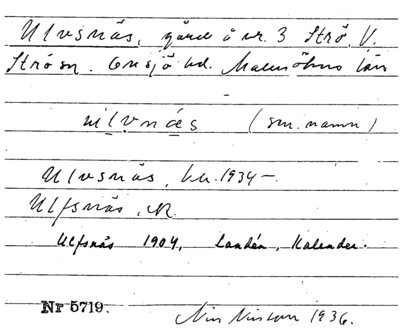 Ulvsnäs, gård å nr. 3 Strö. V.
Strö sn. Onsjö hd. Malmöhus län
ulvnäs (sm. namn)
Ulvsnäs, 1934 –
Ulfsnäs, 
Ulfsnäs 1904, Landén, Kalender.
Nr 5719. 1936.